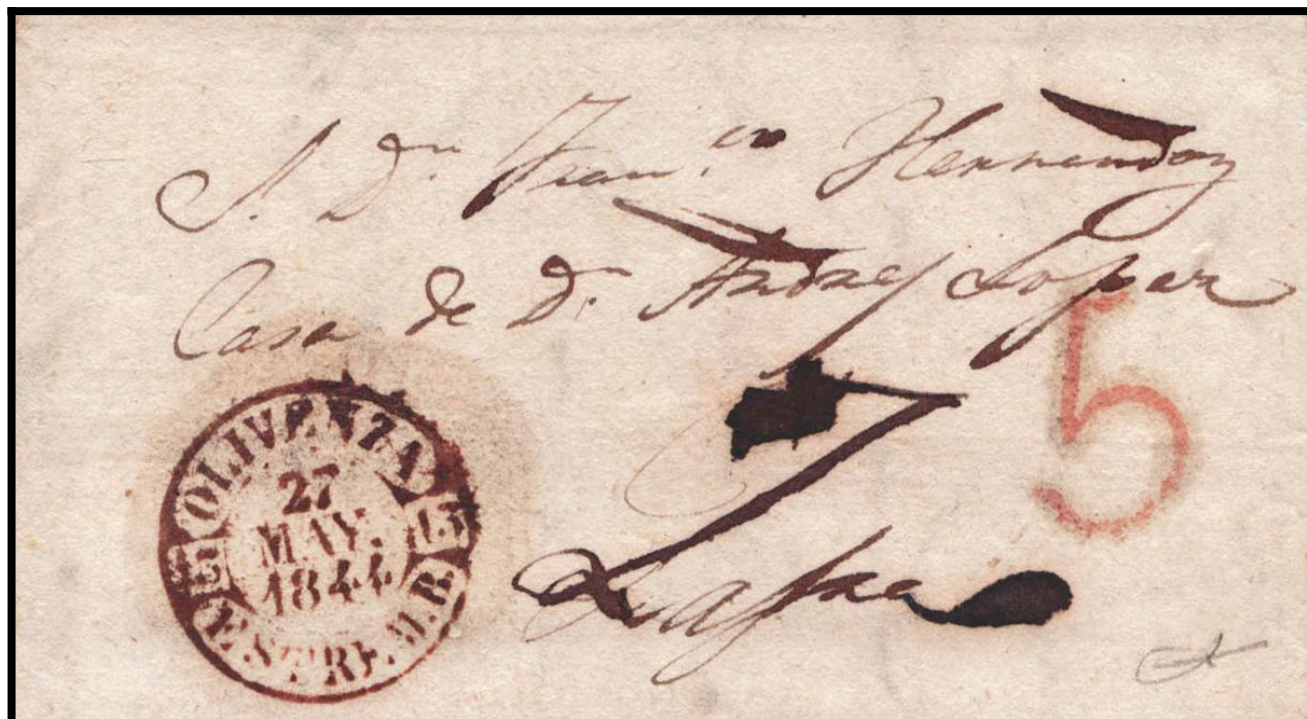 S. Dn. Fran.co Hernandez
Casa de Dn. Andres Lopez
5
Zafra
OLIVENZA
27
MAY.
1844
ESTREM.B.